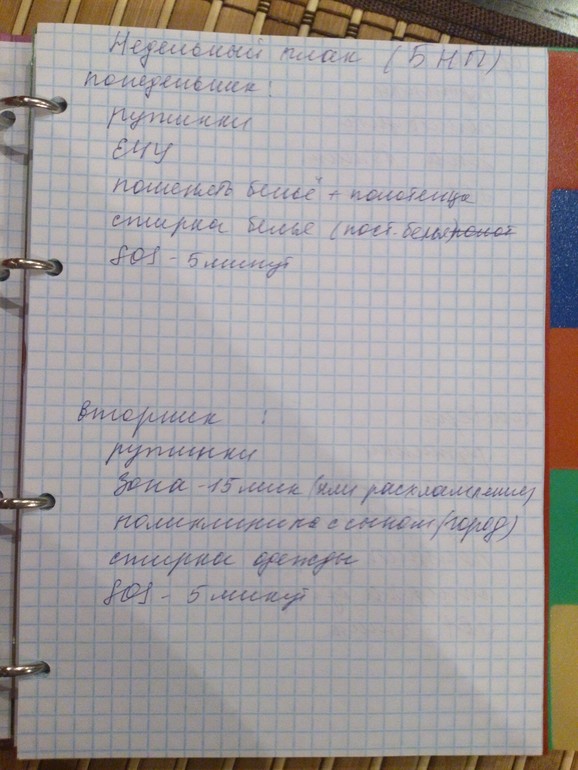 Недельный план (БНП)
понедельник:
рутинки
ЕЧУ
поменять бельё + полотенца
стирка белья (пост. белья)
SOS - 5 минут
вторник :
рутинки
Зона - 15 мин (или расхламрение)
поликлиника с сыном (город)
стирка одежды
SOS - 5 минут